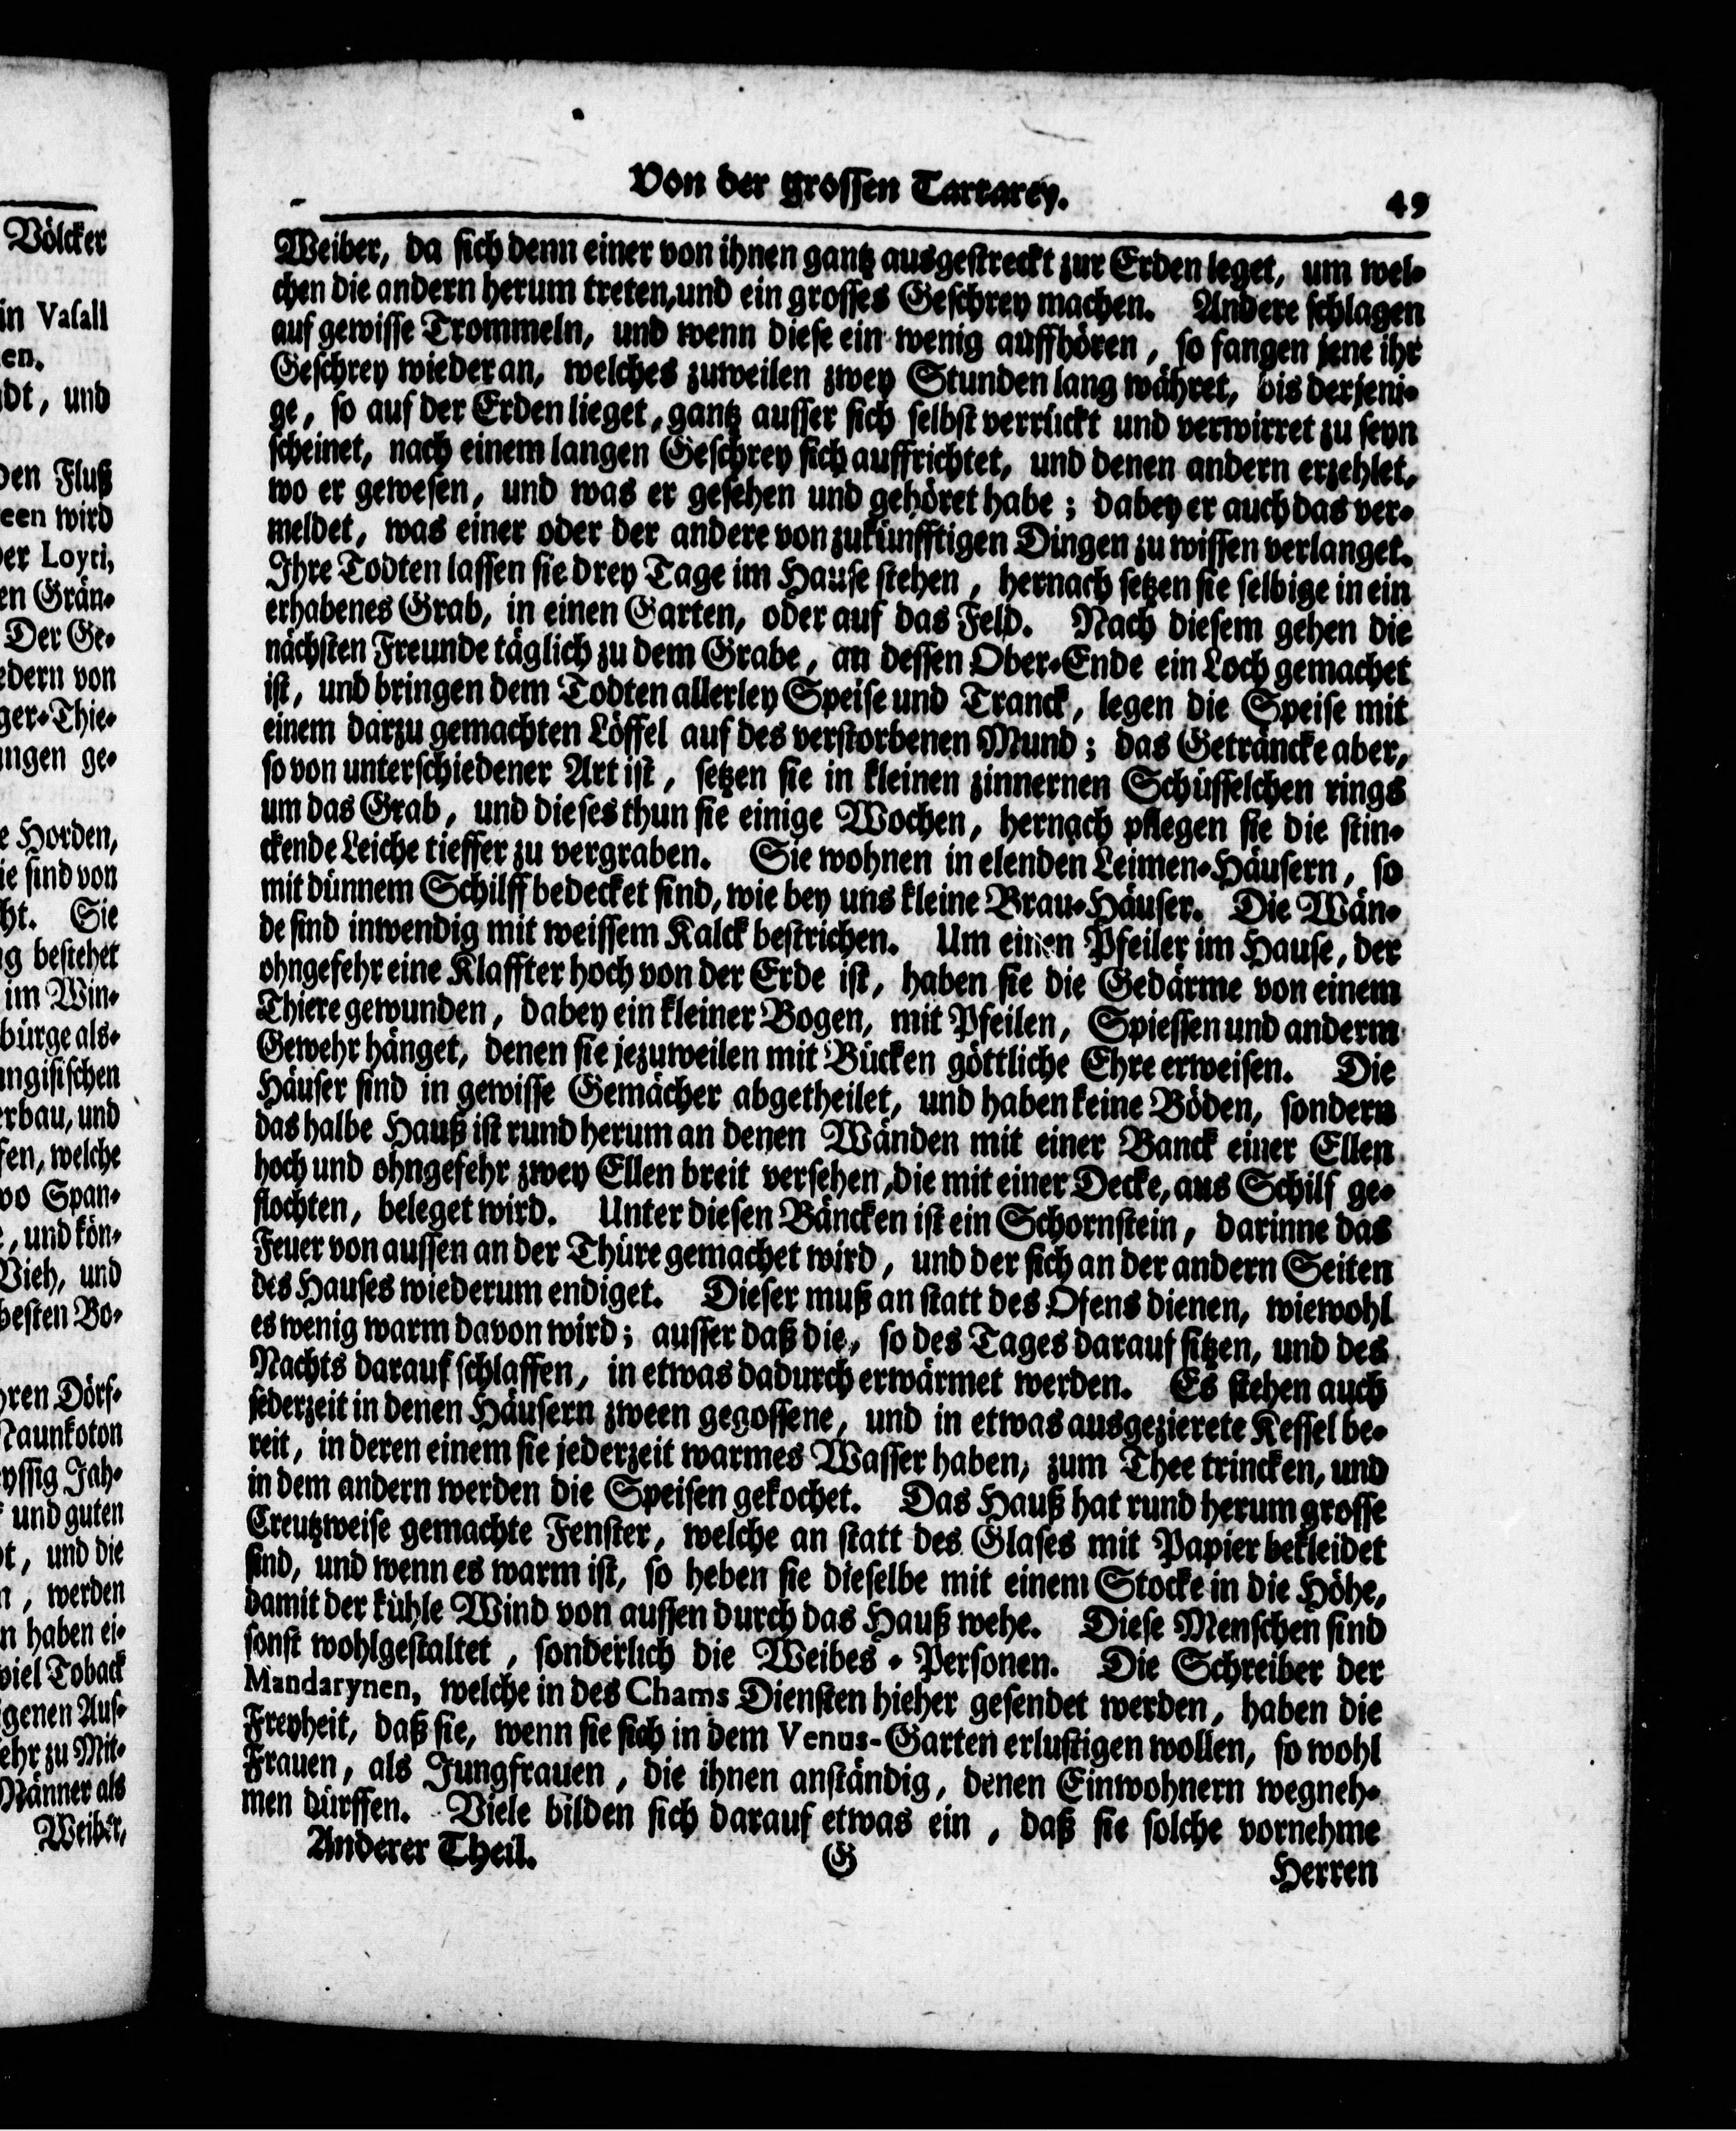 Völcker
in Vasall
en.
dt, und
den Fluß
een wird
er Loyti,
en Grän-
Der Ge-
edern von
ger-Thie-
ungen ge-
e Horden,
ie sind von
ht. Sie
g bestehet
im Win-
bürge als-
ungisischen
rbau, und
en, welche
wo Span-
, und kön-
Vieh, und
besten Bo-
hren Dörf-
Naunkoton
yssig Jah-
und guten
t, und die
n, werden
n haben ei-
viel Toback
igenen Auf-
ehr zu Mit-
Männer als
Weiber,
Von der grossen Tartarey.
49
Weiber, da sich denn einer von ihnen gantz ausgestreckt zur Erden leget, um wel-
chen die andern herum treten, und ein grosses Geschrey machen. Andere schlagen
auf gewisse Trommeln, und wenn diese ein wenig auffhören, so fangen jene ihr
Geschrey wieder an, welches zuweilen zwey Stunden lang währet, bis derjeni-
ge, so auf der Erden lieget, gantz ausser sich selbst verrückt und verwirret zu seyn
scheinet, nach einem langen Geschrey sich auffrichtet, und denen andern erzehlet,
wo er gewesen, und was er gesehen und gehöret habe; dabey er auch das ver-
meldet, was einer oder der andere von zukünfftigen Dingen zu wissen verlanget.
Ihre Todten lassen sie drey Tage im Hause stehen, hernach setzen sie selbige in ein
erhabenes Grab, in einen Garten, oder auf das Feld. Nach diesem gehen die
nächsten Freunde täglich zu dem Grabe, an dessen Ober-Ende ein Loch gemachet
ist, und bringen dem Todten allerley Speise und Tranck, legen die Speise mit
einem darzu gemachten Löffel auf des verstorbenen Mund; das Geträncke aber,
so von unterschiedener Art ist, setzen sie in kleinen zinnernen Schüsselchen rings
um das Grab, und dieses thun sie einige Wochen, hernach pflegen sie die stin-
ckende Leiche tieffer zu vergraben. Sie wohnen in elenden Leimen-Häusern, so
mit dünnem Schilff bedecket sind, wie bey uns kleine Brau-Häuser. Die Wän-
de sind inwendig mit weissem Kalck bestrichen. Um einen Pfeiler im Hause, der
ohngefehr eine Klaffter hoch von der Erde ist, haben sie die Gedärme von einem
Thiere gewunden, dabey ein kleiner Bogen, mit Pfeilen, Spiessen und anderm
Gewehr hänget, denen sie jezuweilen mit Bücken göttliche Ehre erweisen. Die
Häuser sind in gewisse Gemächer abgetheilet, und haben keine Böden, sondern
das halbe Hauß ist rund herum an denen Wänden mit einer Banck einer Ellen
hoch und ohngefehr zwey Ellen breit versehen, die mit einer Decke, aus Schilf ge-
flochten, beleget wird. Unter diesen Bäncken ist ein Schornstein, darinne das
Feuer von aussen an der Thüre gemachet wird, und der sich an der andern Seiten
des Hauses wiederum endiget. Dieser muß an statt des Ofens dienen, wiewohl
es wenig warm davon wird; ausser daß die, so des Tages darauf sitzen, und des
Nachts darauf schlaffen, in etwas dadurch erwärmet werden. Es stehen auch
jederzeit in denen Häusern zween gegossene, und in etwas ausgezierete Kessel be-
reit, in deren einem sie jederzeit warmes Wasser haben, zum Thee trincken, und
in dem andern werden die Speisen gekochet. Das Hauß hat rund herum grosse
Creutzweise gemachte Fenster, welche an statt des Glases mit Papier bekleidet
sind, und wenn es warm ist, so heben sie dieselbe mit einem Stocke in die Höhe,
damit der kühle Wind von aussen durch das Hauß wehe. Diese Menschen sind
sonst wohlgestaltet, sonderlich die Weibes-Personen. Die Schreiber der
Mandarynen, welche in des Chams Diensten hieher gesendet werden, haben die
Freyheit, daß sie, wenn sie sich in dem Venus-Garten erlustigen wollen, so wohl
Frauen, als Jungfrauen, die ihnen anständig, denen Einwohnern wegneh-
men dürffen. Viele bilden sich darauf etwas ein, daß sie solche vornehme
Anderer Theil. G Herren